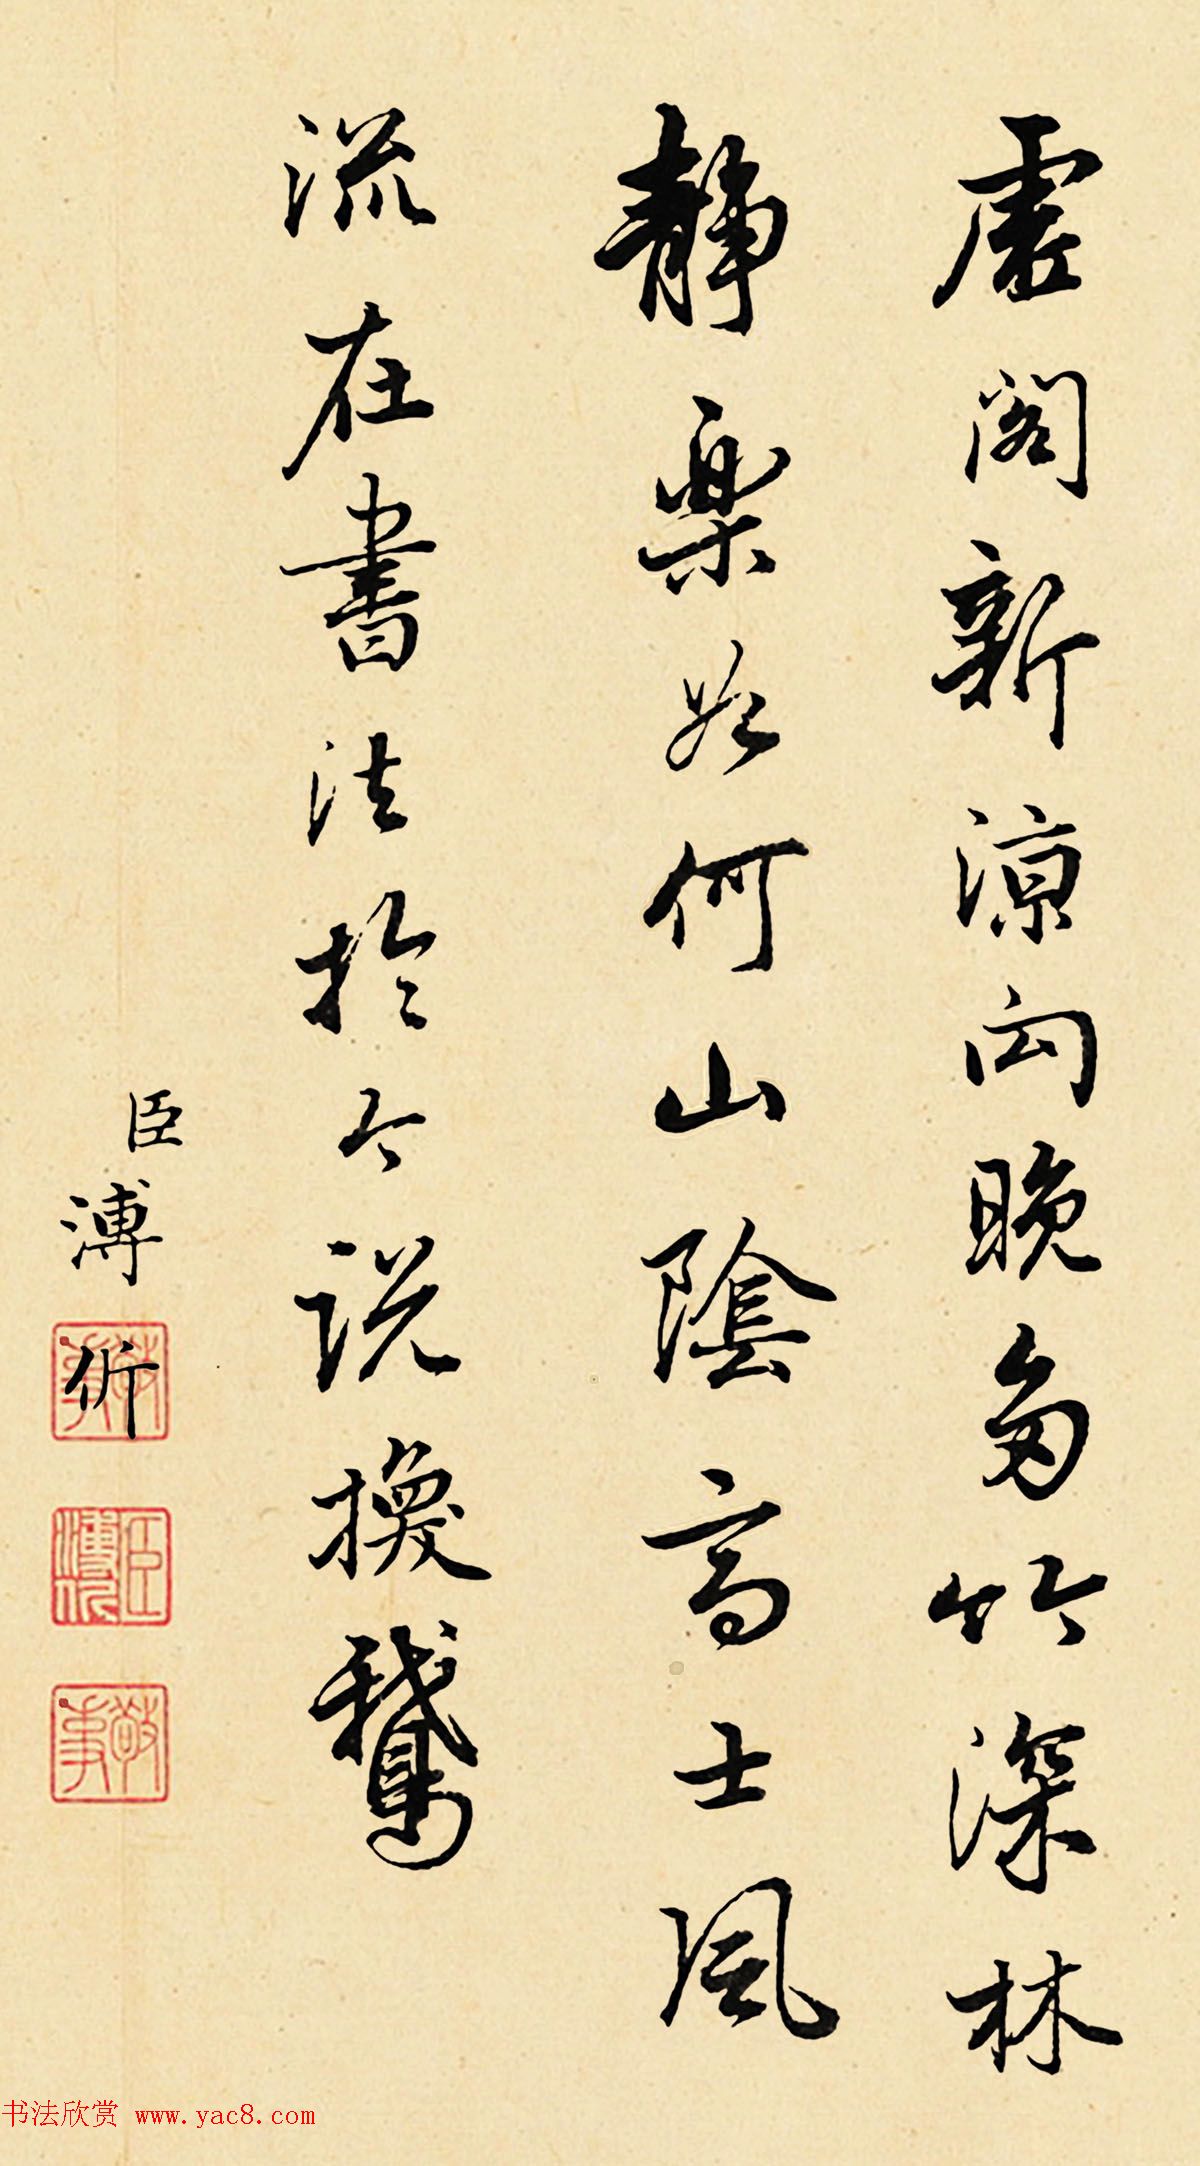 虛閣新涼向晚多竹深林
靜樂如何山陰高士風
流在書法於今說換鵝
臣溥伒
臣溥伒
敬事
书法欣赏 www.yac8.com